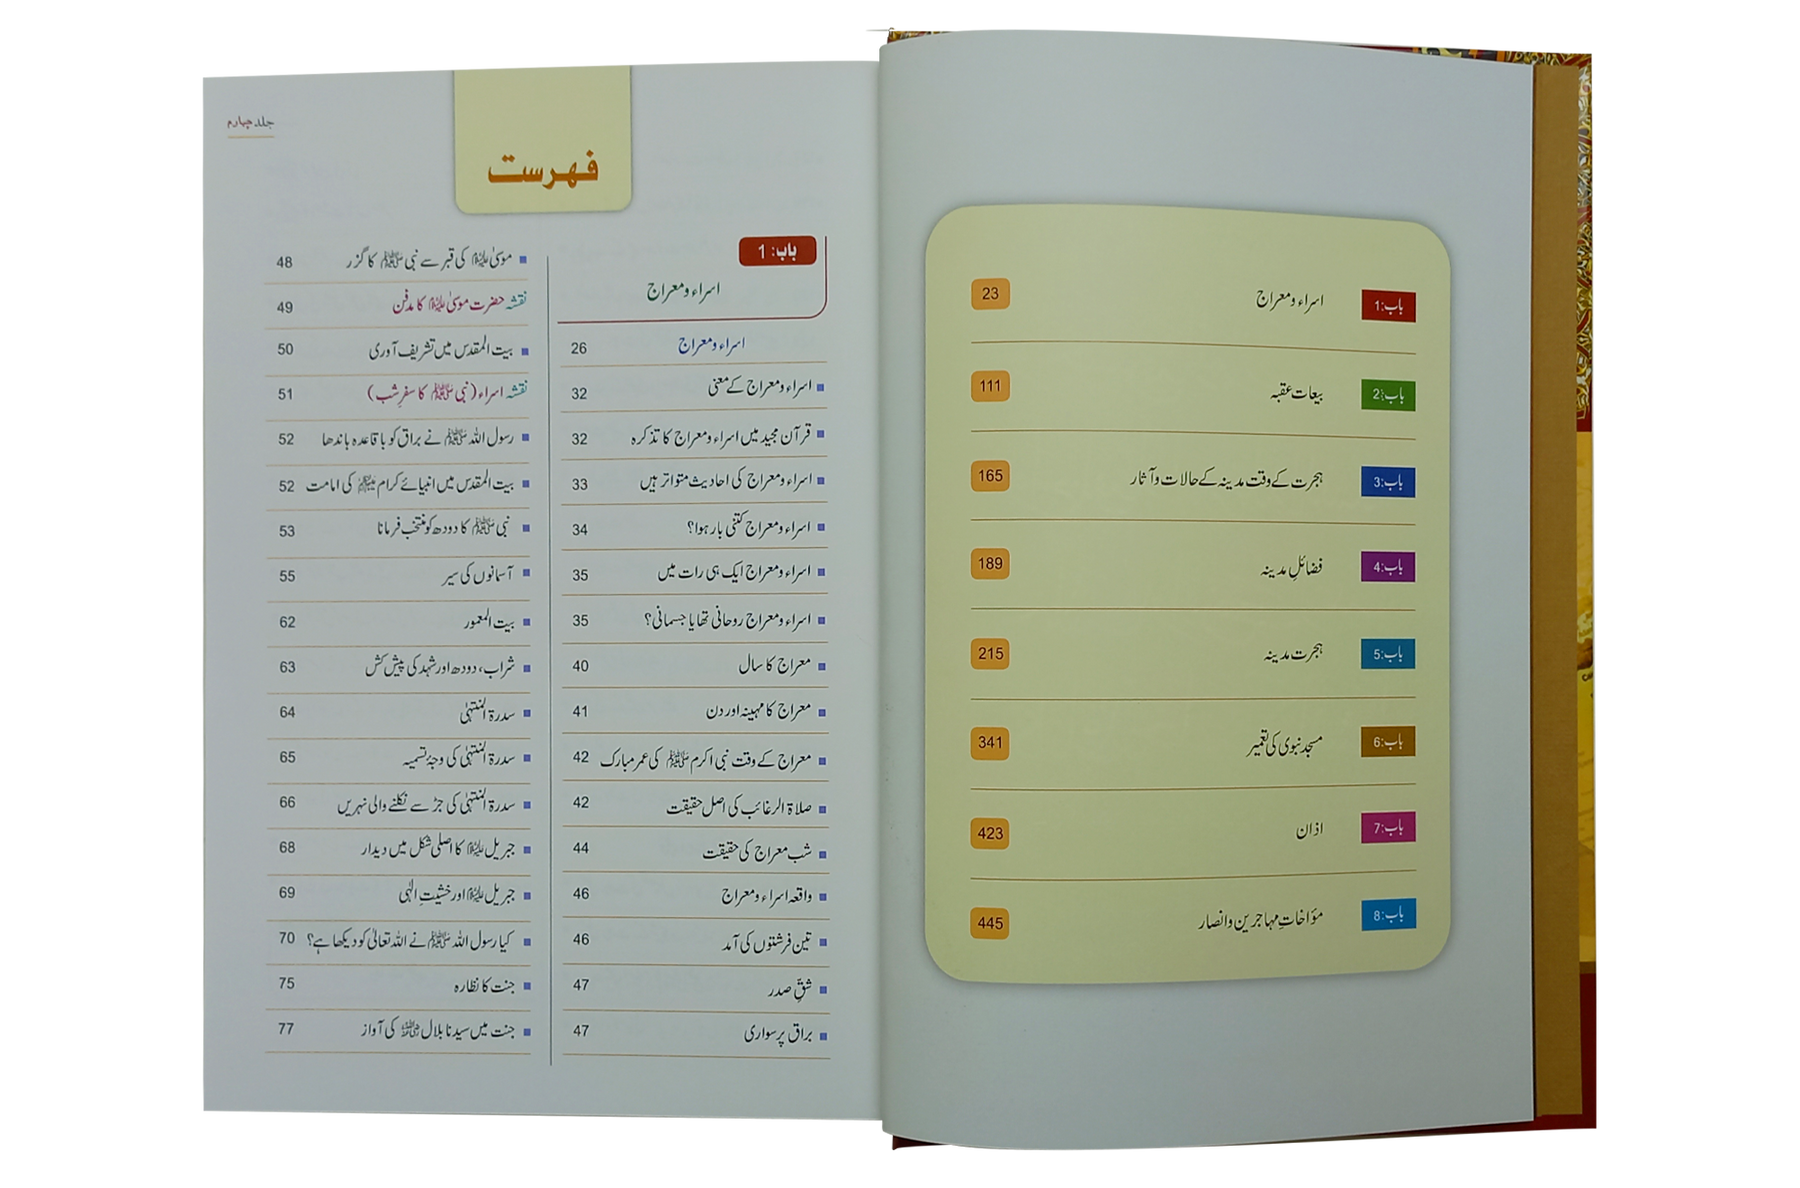 باب:1 اسراء و معراج 23
باب:2 بیعات عقبہ 111
باب:3 ہجرت کے وقت مدینہ کے حالات و آثار 165
باب:4 فضائلِ مدینہ 189
باب:5 ہجرت مدینہ 215
باب:6 مسجد نبوی کی تعمیر 341
باب:7 اذان 423
باب:8 مؤاخاتِ مہاجرین و انصار 445
جلد چہارم
فہرست
باب: 1
اسراء و معراج
اسراء و معراج 26
اسراء و معراج کے معنی 32
قرآن مجید میں اسراء و معراج کا تذکرہ 32
اسراء و معراج کی احادیث متواتر ہیں 33
اسراء و معراج کتنی بار ہوا؟ 34
اسراء و معراج ایک ہی رات میں 35
اسراء و معراج روحانی تھا یا جسمانی؟ 35
معراج کا سال 40
معراج کا مہینہ اور دن 41
معراج کے وقت نبی اکرم ﷺ کی عمر مبارک 42
صلاۃ الرغائب کی اصل حقیقت 42
شب معراج کی حقیقت 44
واقعہ اسراء و معراج 46
تین فرشتوں کی آمد 46
شقِّ صدر 47
براق پر سواری 47
موسیٰ علیہ السلام کی قبر سے نبی ﷺ کا گزر 48
نقشہ حضرت موسیٰ علیہ السلام کا مدفن 49
بیت المقدس میں تشریف آوری 50
نقشہ اسراء (نبی ﷺ کا سفرِ شب) 51
رسول اللہ ﷺ نے براق کو باقاعدہ باندھا 52
بیت المقدس میں انبیائے کرام علیہم السلام کی امامت 52
نبی ﷺ کا دودھ کو منتخب فرمانا 53
آسمانوں کی سیر 55
بیت المعمور 62
شراب، دودھ اور شہد کی پیش کش 63
سدرۃ المنتہیٰ 64
سدرۃ المنتہیٰ کی وجۂ تسمیہ 65
سدرۃ المنتہیٰ کی جڑ سے نکلنے والی نہریں 66
جبریل علیہ السلام کا اصلی شکل میں دیدار 68
جبریل علیہ السلام اور خشیتِ الٰہی 69
کیا رسول اللہ ﷺ نے اللہ تعالیٰ کو دیکھا ہے؟ 70
جنت کا نظارہ 75
جنت میں سیدنا بلال رضی اللہ عنہ کی آواز 77